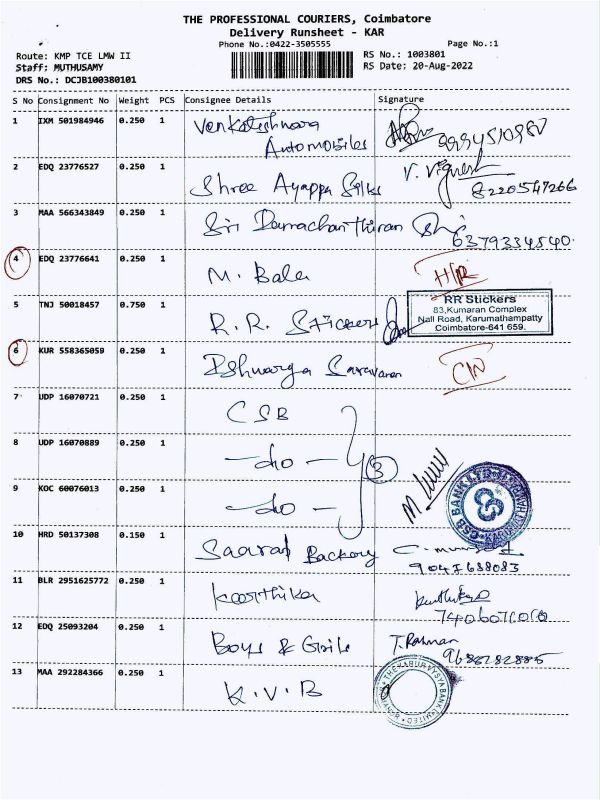 THE PROFESSIONAL COURIERS, Coimbatore
Delivery Runsheet - KAR
Phone No.:0422-3505555
Page No.:1
Route: KMP TCE LMW II
RS No.: 1003801
Staff: MUTHUSAMY
RS Date: 20-Aug-2022
DRS No.: DCJB100380101
S No Consignment No Weight PCS Consignee Details Signature
1 IXM 501984946 0.250 1 Venkateshwara
Automobiles 9994510987
2 EDQ 23776527 0.250 1 Shree Ayappa Silks V. Vignesh
8220547266
3 MAA 566343849 0.250 1 Sri Ramachanthiran
6379334540.
4 EDQ 23776641 0.250 1 M. Bala
5 TNJ 50018457 0.750 1 R.R. Stickers
RR Stickers
83,Kumaran Complex
Nall Road, Karumathampatty
Coimbatore-641 659.
6 KUR 558365059 0.250 1 Eshwarga Saravanan
7 UDP 16070721 0.250 1 CSB
8 UDP 16070889 0.250 1 -do- 3
9 KOC 60076013 0.250 1 -do-
CSB BANK LTD
10 HRD 50137308 0.150 1 Backery
11 BLR 2951625772 0.250 1 Karthika
12 EDQ 25093204 0.250 1 Boys & Girls T. Rahman
13 MAA 292284366 0.250 1 K.V.B
THE KARUR VYSYA BANK LIMITED